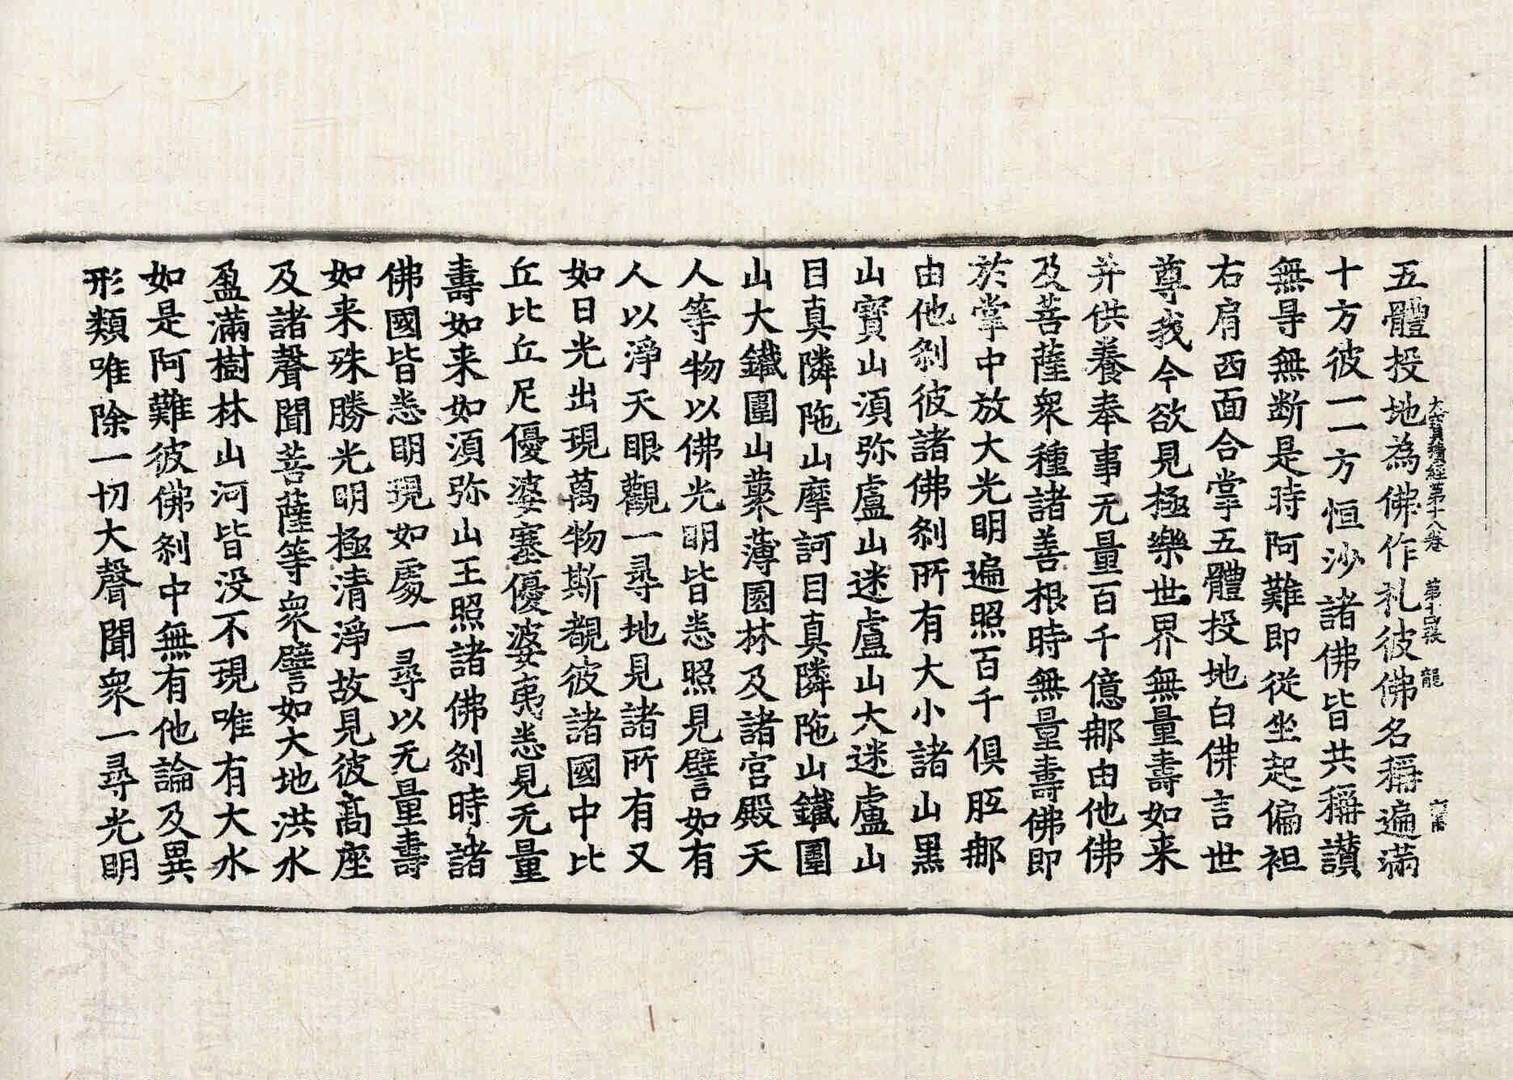 大寶積經第十八卷 第十四張 龍
五體投地為佛作礼彼佛名稱遍滿
十方彼一一方恒沙諸佛皆共稱讃
無㝵無断是時阿難即從坐起偏袒
右肩西面合掌五體投地白佛言世
尊我今欲見極樂世界無量壽如来
并供養奉事无量百千億那由他佛
及菩薩衆種諸善根時無量壽佛即
於掌中放大光明遍照百千俱胝那
由他刹彼諸佛刹所有大小諸山黒
山寶山湏弥盧山迷盧山大迷盧山
目真隣陁山摩訶目真隣陁山鐵圍
山大鐵圍山藂薄園林及諸宮殿天
人等物以佛光明皆悉照見譬如有
人以淨天眼觀一尋地見諸所有又
如日光出現萬物斯覩彼諸國中比
丘比丘尼優婆塞優婆夷悉見无量
壽如来如湏弥山王照諸佛刹時諸
佛國皆悉明現如處一尋以无量壽
如来殊勝光明極清淨故見彼髙座
及諸聲聞菩薩等衆譬如大地洪水
盈滿樹林山河皆没不現唯有大水
如是阿難彼佛刹中無有他論及異
形類唯除一切大聲聞衆一尋光明